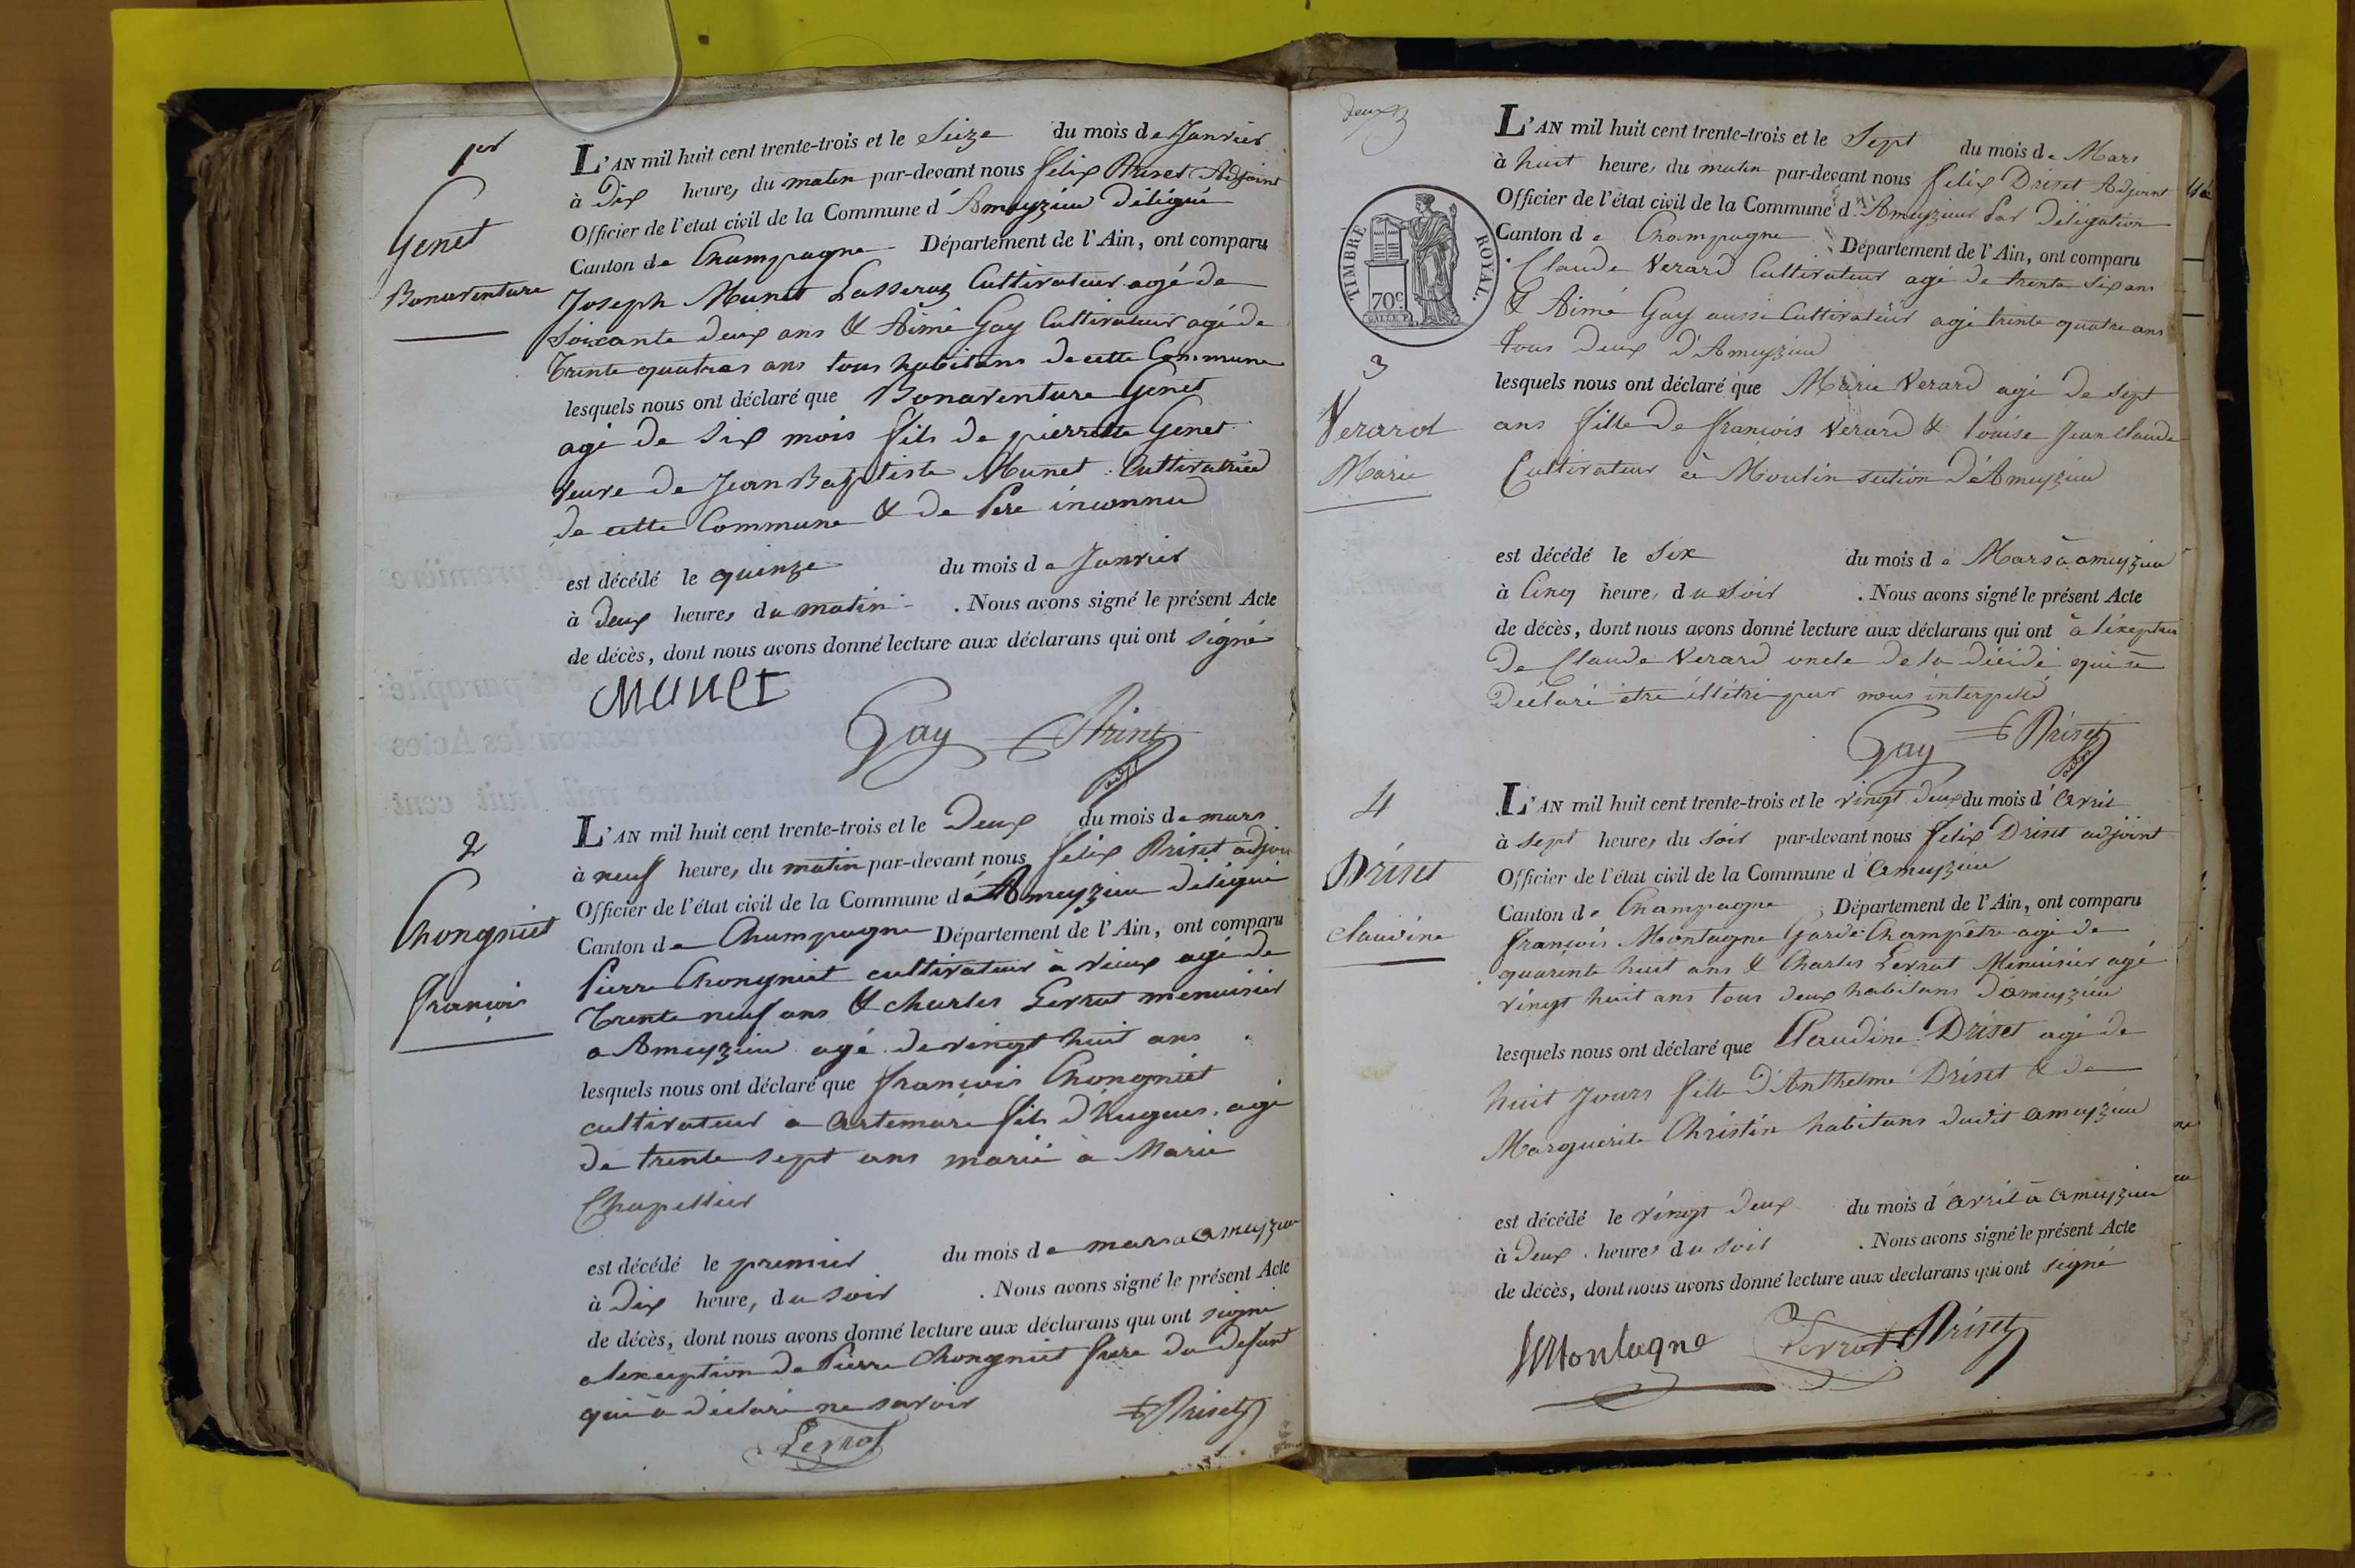 1er
Genet
Bonaventure
L'AN mil huit cent trente-trois et le Seize du mois de Janvier
à Dix heures du matin par-devant nous félix Driset Adjoint
Officier de l'état civil de la Commune d'Ameyzieu Délégué
Canton de Champagne Département de l'Ain, ont comparu
Joseph Munet Lasseraz Cultivateur agé de
Soixante deux ans & Aimé Gay Cultivateur agé de
Trente quatres ans tous habitans de cette Commune
lesquels nous ont déclaré que Bonaventure Genet
agé de Six mois fils de pierrette Genet
veuve de Jean Baptiste Munet Cultivatrice
de cette Commune & de Pere inconnu
est décédé le quinze du mois de Janvier
à Deux heures du matin . Nous avons signé le présent Acte
de décès, dont nous avons donné lecture aux déclarans qui ont signé
Munet
Gay Driset
adjt
2
Chongniet
françois
L'AN mil huit cent trente-trois et le Deux du mois de mars
à neuf heures du matin par-devant nous félix Driset adjoin
Officier de l'état civil de la Commune d'Ameyzieu délégué
Canton de Champagne Département de l'Ain, ont comparu
Pierre Chongniet cultivateur à vieux agé de
Trente neuf ans & charles Perrot menuisier
a Ameyzieu agé de vingt huit ans
lesquels nous ont déclaré que françois Chongniet
cultivateur a artemare fils d'hugues agé
de trente sept ans marié a Marie
Chapellier
est décédé le premier du mois de mars a ameyzieu
à Dix heures du soir . Nous avons signé le présent Acte
de décès, dont nous avons donné lecture aux déclarans qui ont signé
a lexception de Pierre Chongniet frere du defunt
qui a déclaré ne savoir
Perrot Driset
deux
TIMBRE ROYAL.
70c
3
Verard
Marie
L'AN mil huit cent trente-trois et le Sept du mois de Mars
à huit heures du matin par-devant nous félix Driset Adjoint
Officier de l'état civil de la Commune d'Ameyzieu Par Délégation
Canton de Champagne Département de l'Ain, ont comparu
Claude Verard Cultivateur agé de trente Six ans
& Aimé Gay aussi Cultivateur agé trente quatre ans
tous deux d'Ameyzieu
lesquels nous ont déclaré que Marie Verard agé de sept
ans fille de françois Verard & louise Jean claude
Cultivateur à Moulin section d'Ameyzieu
est décédé le Six du mois de Mars à ameyzieu
à Cinq heures du soir . Nous avons signé le présent Acte
de décès, dont nous avons donné lecture aux déclarans qui ont à l'exeption
De Claude Verard oncle de la décédé qui à
Déclaré être illétré par nous interpellé
Gay Driset
4
Driset
claudine
L'AN mil huit cent trente-trois et le vingt deux du mois d'avril
à sept heures du soir par-devant nous félix Driset adjoint
Officier de l'état civil de la Commune d'ameyzieu
Canton de Champagne Département de l'Ain, ont comparu
françois Montagne Garde Champêtre agé de
quarante huit ans & Charles Perrot Menuisier agé
vingt huit ans tous deux habitans d'ameyzieu
lesquels nous ont déclaré que Claudine Driset agé de
huit Jours fille d'Anthelme Driset & de
Marguerite Christin habitans dudit ameyzieu
est décédé le vingt Deux du mois d'avril à ameyzieu
à Deux heures du soir . Nous avons signé le présent Acte
de décès, dont nous avons donné lecture aux declarans qui ont signé
Montagne Perrot Driset